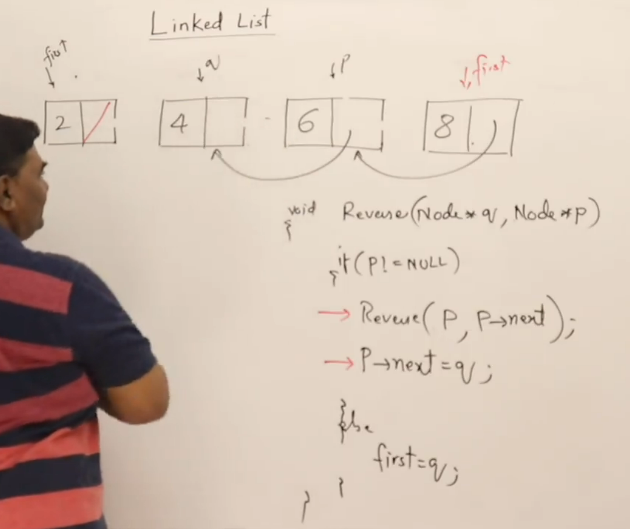 Linked List
first
q
p
first
2
4
6
8
void Reverse(Node* q, Node *P)
{
if(P!=NULL)
{
Reverse(P, P→next);
P→next=q;
}
else
first=q;
}
}